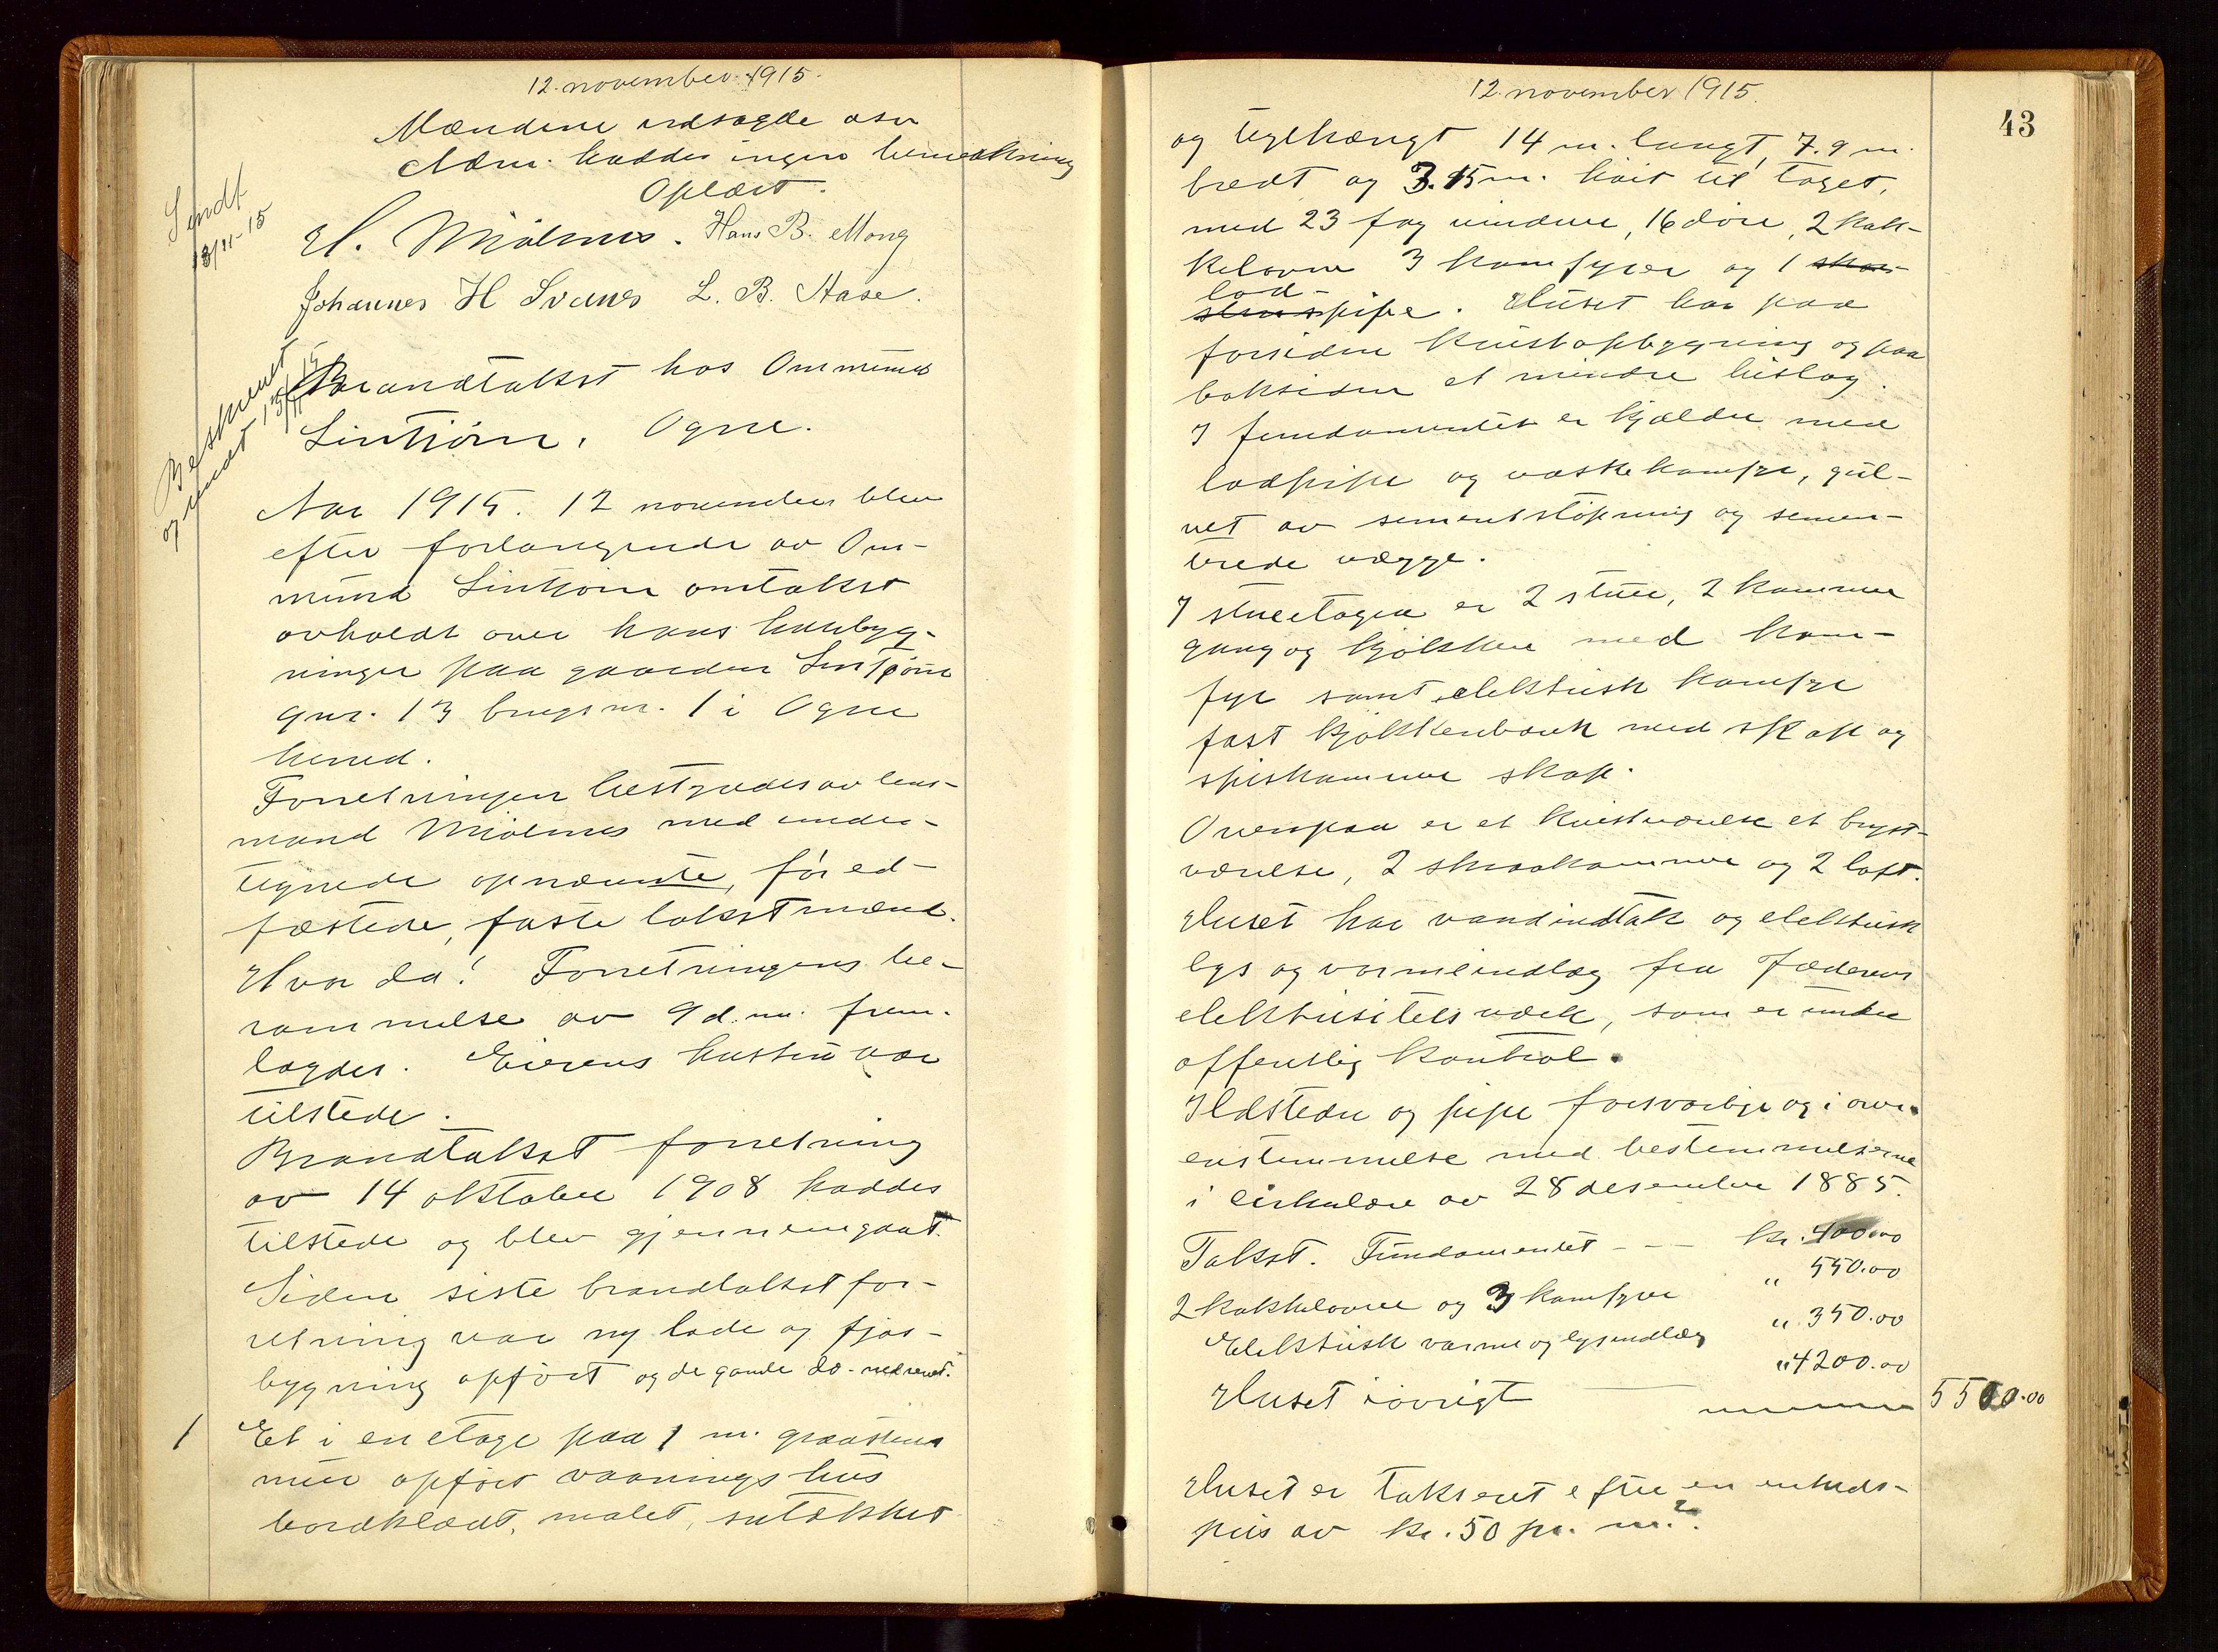 12. november 1915.
Mændene utsagde som
Nævn. hadde ingen bemerkning
Oplæst.
Sendt
13/11-15
H. Mjølsnes. Hans B. Mong
Johannes H Svanes L. B. Aase.
Beskrevet
og sendt 15/11 15
Brandtakst hos Ommund
Lintjørn, Ogne.
Aar 1915. 12 november blev
efter forlangende av Om-
mund Lintjørn omtakst
avholdt over hans husbyg-
ninger paa gaarden Lintjørn
gnr. 13 brugsnr. 1 i Ogne
herred.
Forretningen bestyredes av lens-
mand Mjølsnes med under-
tegnede opnævnte, før ed-
fæstede, faste takstmænd.
Hvor da! Forretningens be-
rammelse av 9 d. m. frem-
lagdes. Eierens hustru var
tilstede.
Brandtakst forretning
av 14 oktober 1908 haddes
tilstede og blev gjennemgaat.
Siden siste brandtakst for-
retning var ny lade og fjøs-
bygning opført og de gamle do - nedrevet.
1 Et i en etage paa 1 m. graastens
mur opført vaaningshus
bordklædt, malet, sutækket
12. november 1915.
43
og teglhængt 14 m. langt, 7.9 m.
bredt og 3.15 m. høit til taget,
med 23 fag vinduer, 16 døre, 2 kak-
kelovne 3 komfyrer og 1
lod-
pipe. Huset har paa
forsiden kvistopbygning og paa
baksiden et mindre bislag.
I fundamentet er kjælder med
lodpipe og vaskekomfyr, gul-
vet av sementstøpning og semen-
terede vægge.
I stueetagen er 2 stuer, 2 kammer
gang og kjøkken med kom-
fyr samt elektrisk komfyr
fast kjøkkenbænk med skap og
spiskammer skap.
Ovenpaa er et kvistværelse et bryst-
værelse, 2 skraakammer og 2 loft.
Huset har vandindtak og elektrisk
lys og varmeindlæg fra Jæderens
elektrisitetsværk, som er under
offentlig kontrol.
Ildsteder og pipe forsvarlige og i over-
enstemmelse med bestemmelserne
i cirkulære av 28 desember 1885.
Takst. Fundamentet - - - kr. 400.00
2 kakkelovne og 3 komfyrer " 550.00
Elektrisk varme og lysindlæg " 350.00
Huset iøvrigt " 4200.00
5500.00
Huset er takseret efter en enheds-
pris av kr. 50 pr. m².